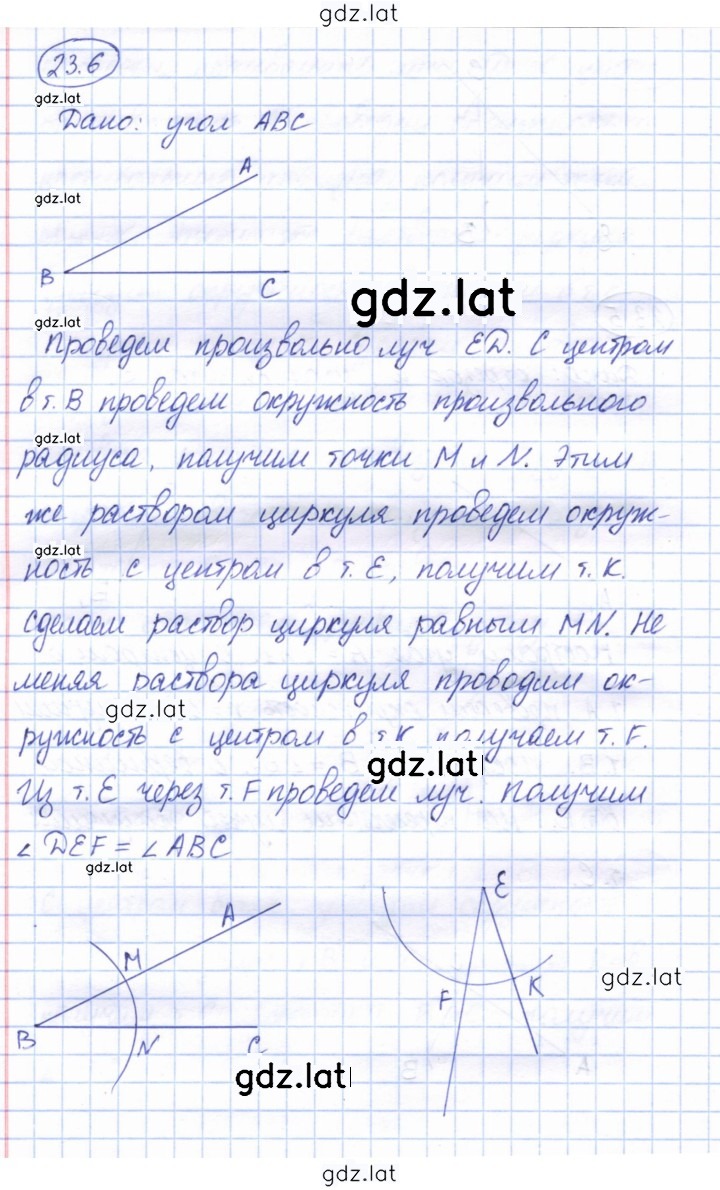 gdz.lat
23.6
gdz.lat
Дано: угол ABC
A
gdz.lat
B
C
gdz.lat
gdz.lat
Проведем произвольно луч ED. С центром
в т. B проведем окружность произвольного
gdz.lat
радиуса, получим точки M и N. Этим
же раствором циркуля проведем окруж-
gdz.lat
ность с центром в т. E, получим т. K.
Сделаем раствор циркуля равным MN. Не
меняя раствора циркуля проводим ок-
gdz.lat
ружность с центром в т. K получаем т. F.
gdz.lat
Из т. E через т. F проведем луч. Получим
∠ DEF = ∠ ABC
gdz.lat
A
E
M
gdz.lat
F
K
B
N
C
gdz.lat
gdz.lat